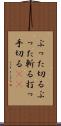 ぶった切るぶ
った斬る打っ
手切る